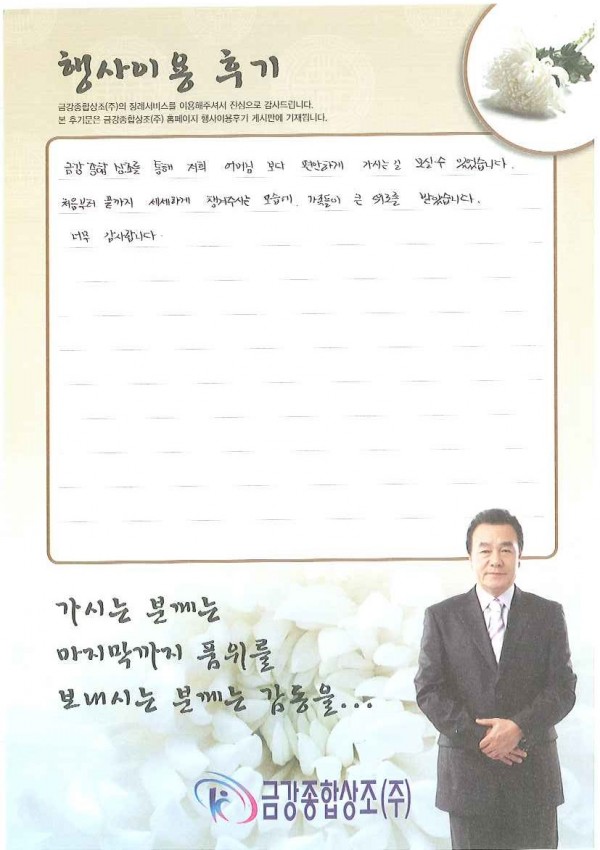 행사이용 후기
금강종합상조(주)의 장례서비스를 이용해주셔서 진심으로 감사드립니다.
본 후기문은 금강종합상조(주) 홈페이지 행사이용후기 게시판에 기재됩니다.
금강 종합 상조를 통해 저희 어머님 보다 편안하게 가시는 길 모실수 있었습니다.
처음부터 끝까지 세세하게 챙겨주시는 모습에 가족들이 큰 위로를 받았습니다.
너무 감사합니다.
가시는 분께는
마지막까지 품위를
보내시는 분께는 감동을...
금강종합상조(주)